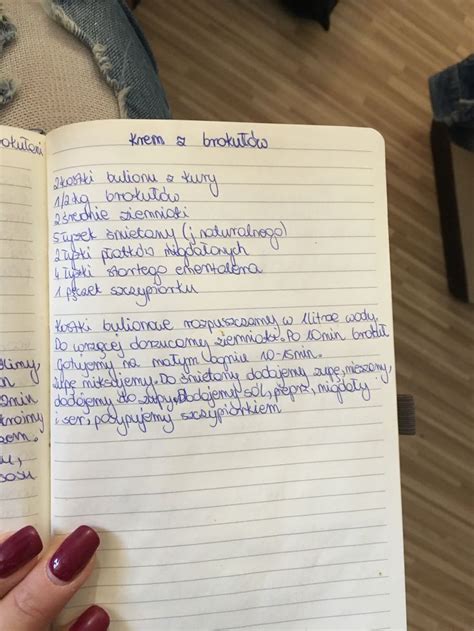 Krem z brokułów
2 kostki bulionu z kury
1/2 kg brokułów
2 średnie ziemniaki
5 łyżek śmietany (j. naturalnego)
2 łyżki płatków migdałowych
4 łyżki startego ementalera
1 pęczek szczypiorku
Kostki bulionowe rozpuszczamy w 1 litrze wody.
Do wrzącej dorzucamy ziemniaki. Po 10min brokuł
Gotujemy na małym ogniu 10-15min.
Zupę miksujemy. Do śmietany dodajemy zupę, mieszamy,
dodajemy do zupy. Dodajemy sól, pieprz, migdały
i ser, posypujemy szczypiorkiem